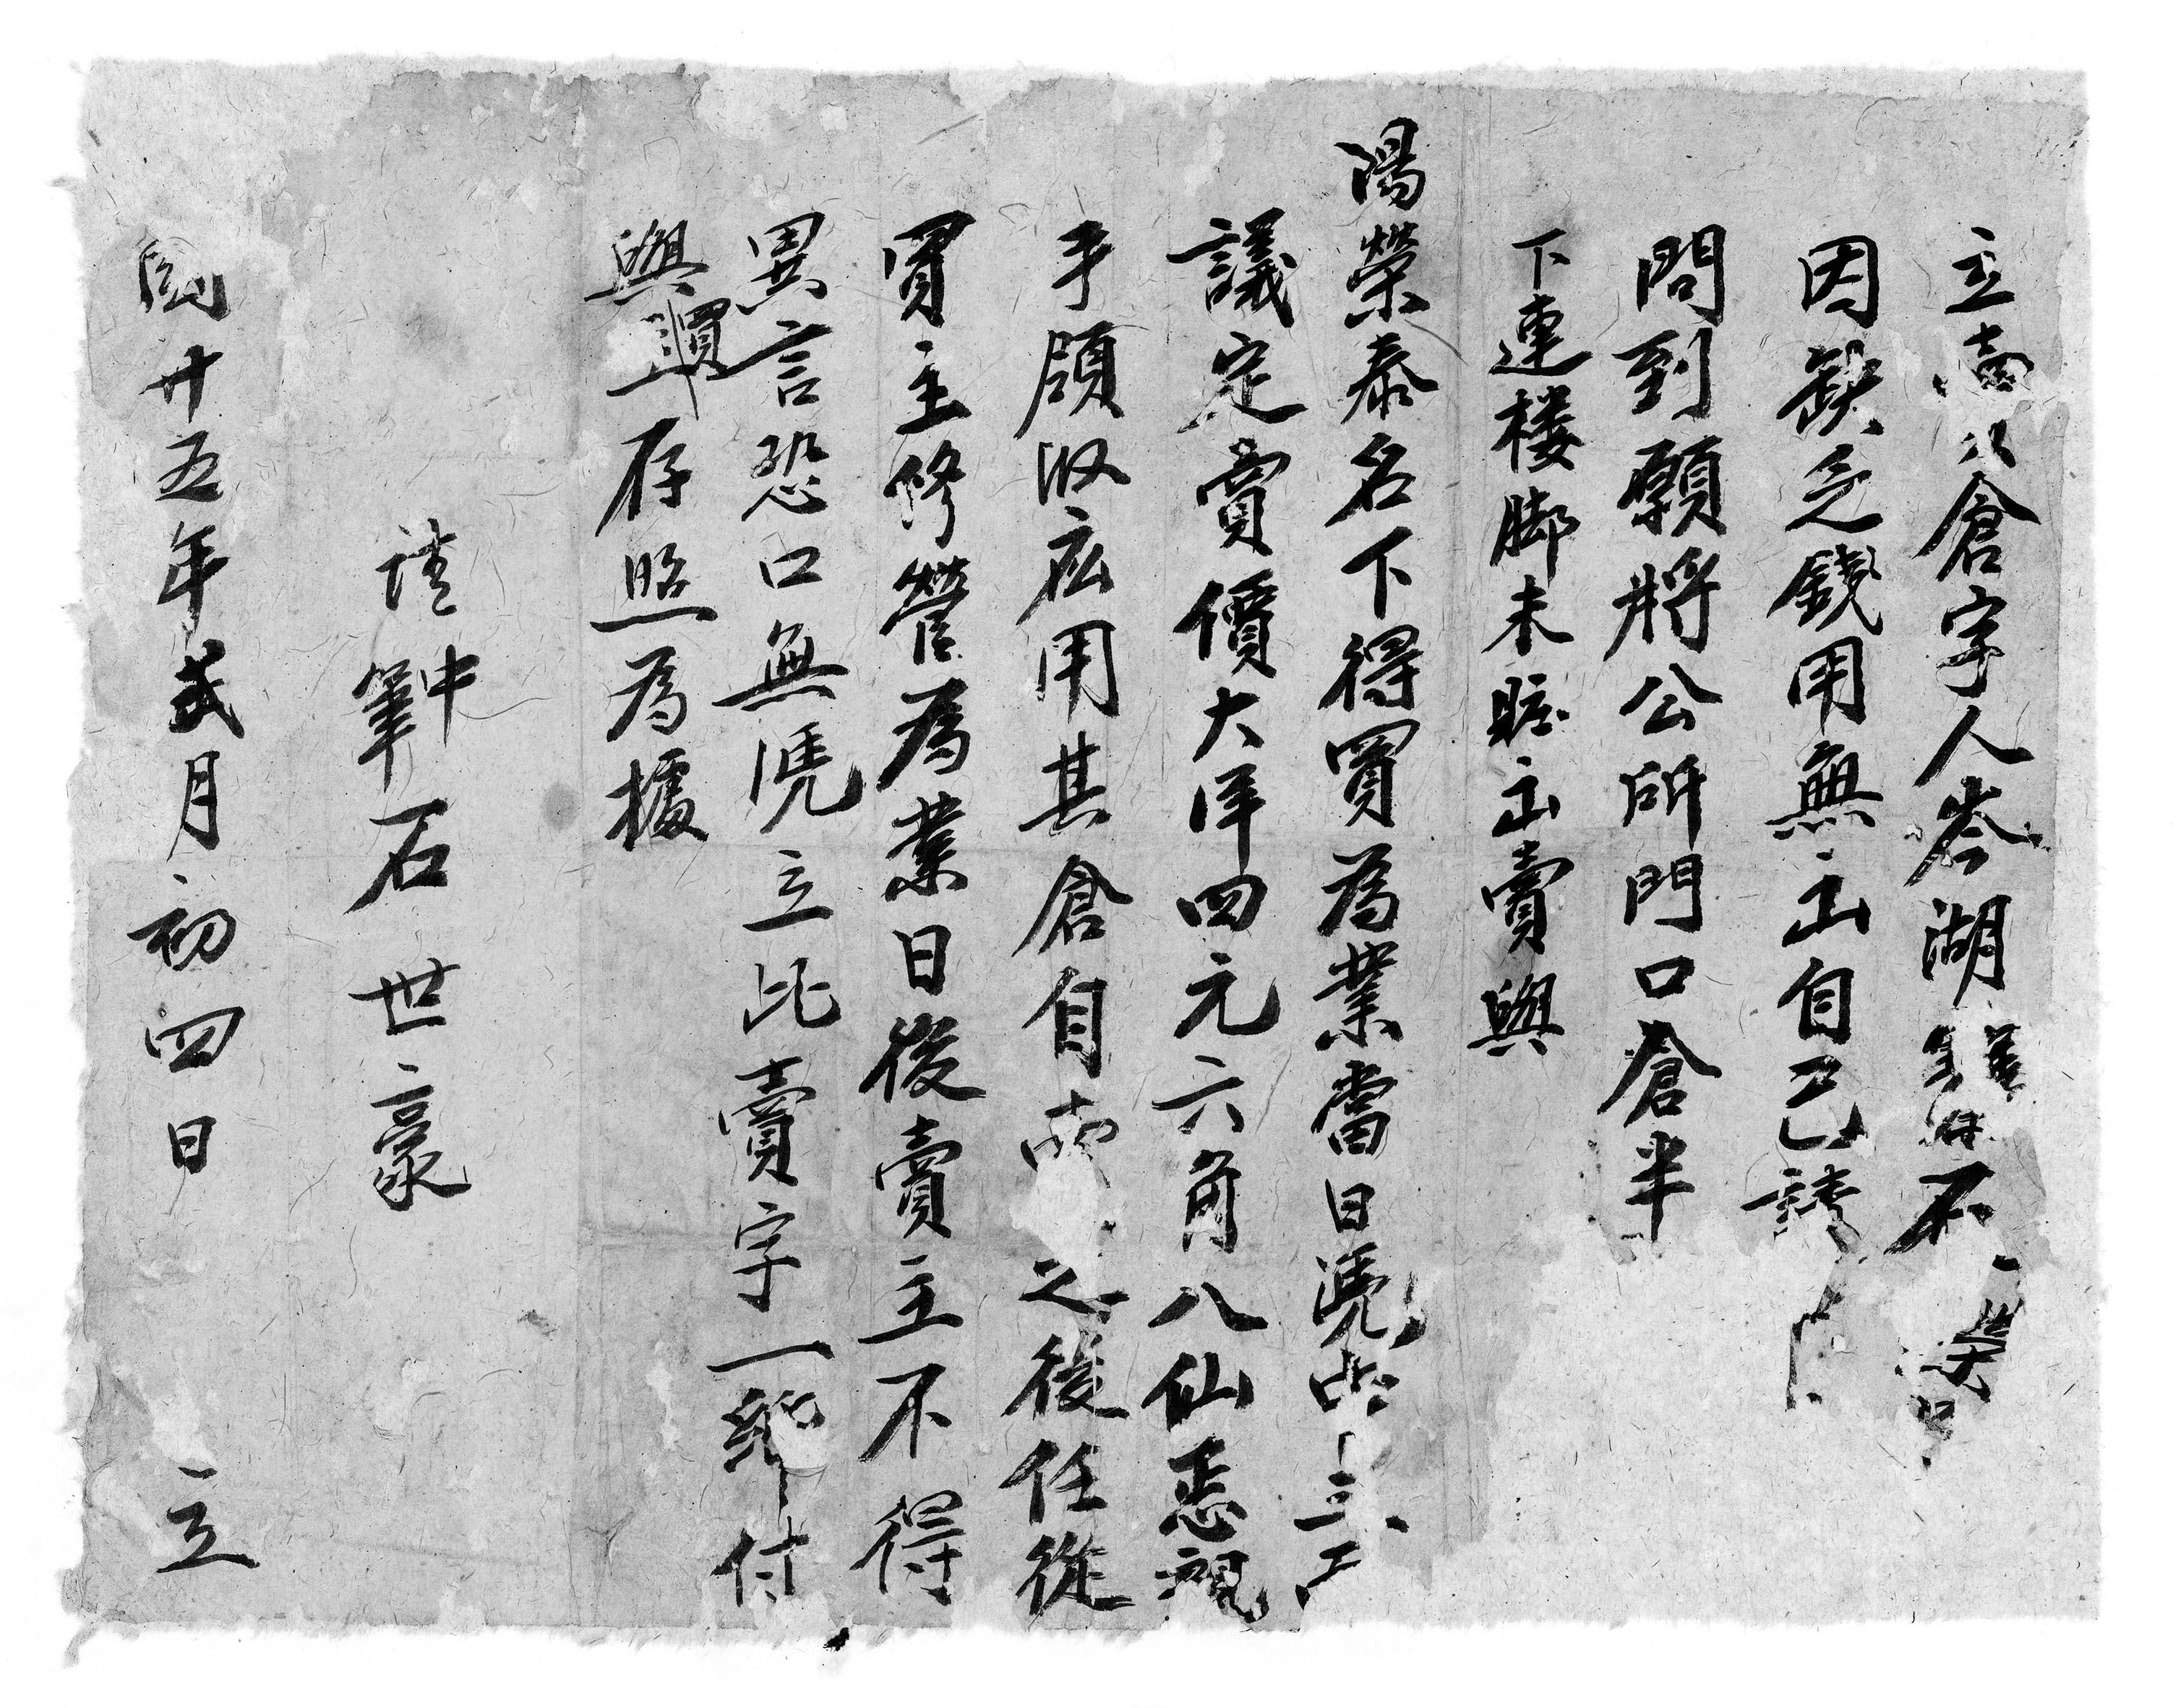 立賣倉字人岑湖不
因缺乏錢用無出自己請
問到願將公所門口倉半
下連楼脚未賍出賣與
湯榮泰名下得買為業當日凴
議定賣價大洋四元六角八仙悉親
手領収応用其倉自賣之後任從
買主修營為業日後賣主不得
異言恐口無凴立此賣字一紙付
與買主存照為據
請中筆石世豪
國廿五年弍月初四日 立